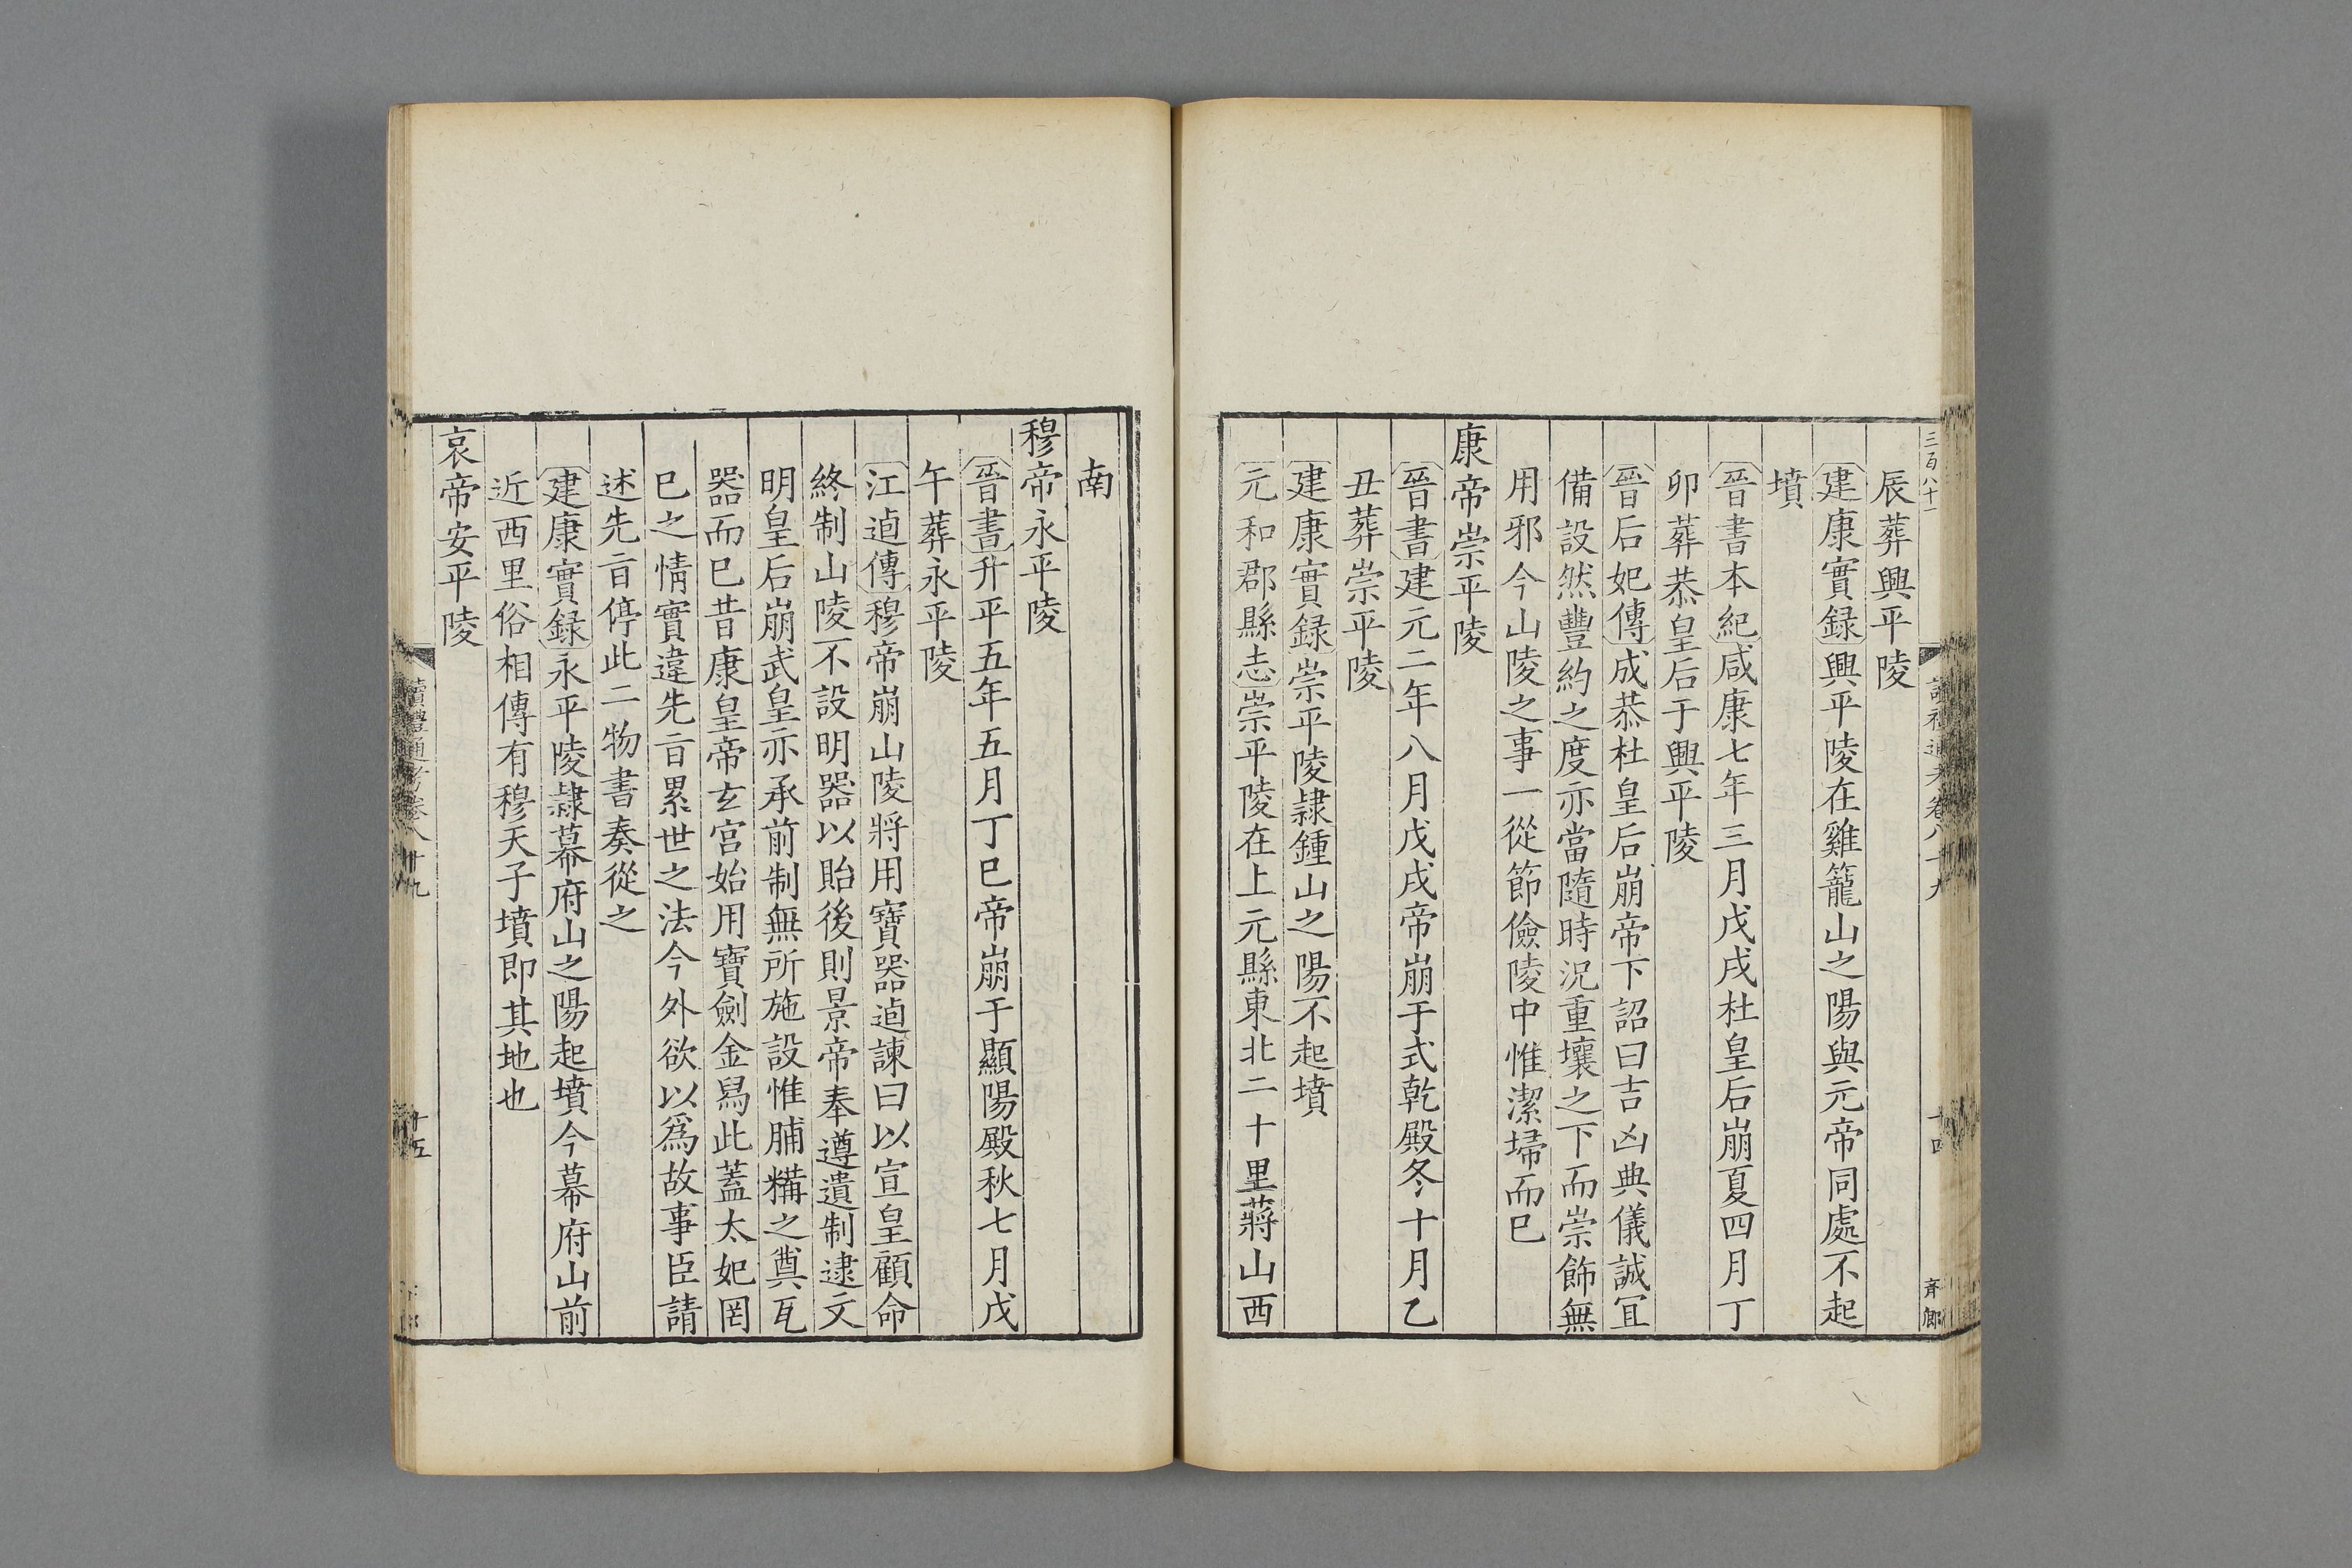 三百八十一
讀禮通考卷八十九
十四
辰葬興平陵
建康實録興平陵在雞籠山之陽與元帝同處不起
墳
晉書本紀咸康七年三月戊戌杜皇后崩夏四月丁
卯葬恭皇后于興平陵
晉后妃傳成恭杜皇后崩帝下詔曰吉凶典儀誠冝
備設然豐約之度亦當隨時況重壤之下而崇飾無
用邪今山陵之事一從節儉陵中惟潔埽而已
康帝崇平陵
晉書建元二年八月戊戌帝崩于式乾殿冬十月乙
丑葬崇平陵
建康實録崇平陵隷鍾山之陽不起墳
元和郡縣志崇平陵在上元縣東北二十里蔣山西
南
穆帝永平陵
晉書升平五年五月丁巳帝崩于顯陽殿秋七月戊
午葬永平陵
江逌傳穆帝崩山陵將用寶器逌諫曰以宣皇顧命
終制山陵不設明器以貽後則景帝奉遵遺制逮文
明皇后崩武皇亦承前制無所施設惟脯糒之奠瓦
器而已昔康皇帝玄宫始用寶劍金舄此蓋太妃罔
已之情實違先㫖累世之法今外欲以爲故事臣請
述先㫖停此二物書奏從之
建康實録永平陵隷幕府山之陽起墳今幕府山前
近西里俗相傳有穆天子墳即其地也
哀帝安平陵
讀禮通考卷八十九
十五